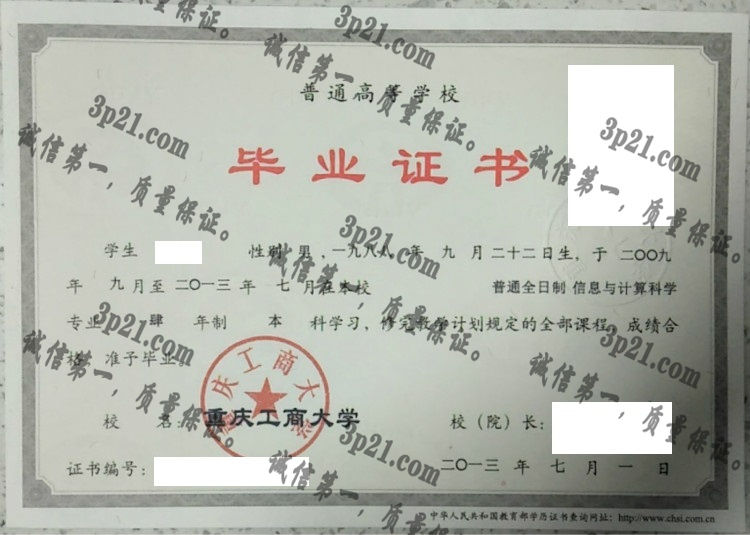 3p21.com
诚信第一，质量保证。
普通高等学校
毕业证书
学生 性别 男，一九八八年 九 月二十二日生，于 二〇〇九
年 九 月至 二〇一三 年 七 月在本校 普通全日制 信息与计算科学
专业 肆 年制 本 科学习，修完教学计划规定的全部课程，成绩合
格，准予毕业。
重庆工商大学
校 名：重庆工商大学 校（院）长：
证书编号： 二〇一三 年 七 月 一 日
中华人民共和国教育部学历证书查询网址：http://www.chsi.com.cn
3p21.com
诚信第一，质量保证。
3p21.com
诚信第一，质量保证。
3p21.com
诚信第一，质量保证。
3p21.com
诚信第一，质量保证。
3p21.com
诚信第一，质量保证。
3p21.com
诚信第一，质量保证。